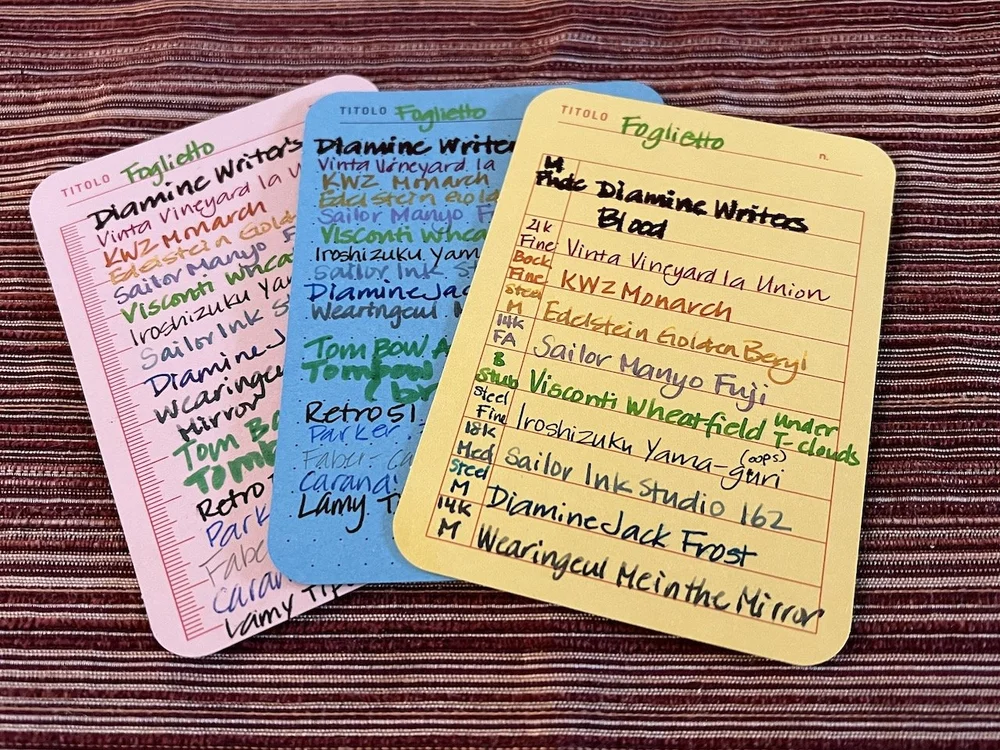 TITOLO Foglietto
Diamine Writer's
Vinta Vineyard la U
KWZ Monarch
Edelstein Gold
Sailor Manyo F
Visconti Whea
Iroshizuku Ya
Sailor Ink S
Diamine J
Wearingeu
Mirror
Tom Bo
Tomb
Retro
Park
Fabe
Caran
Lamy Tip
TITOLO Foglietto
Diamine Writer
Vinta Vineyard la
KWZ Monarch
Edelstein Gold
Sailor Manyo F
Visconti Whea
Iroshizuku Yam
Sailor Ink S
Diamine Jac
Wearingeul
Tom Bow A
Tombow
br
Retro 51
Parker
Faber-Ca
Carand
Lamy T
TITOLO Foglietto n.
M Diamine Writers
Blood
21k Fine Vinta Vineyard la Union
Bock Fine KWZ Monarch
Steel M Edelstein Golden Beryl
14k FA Sailor Manyo Fuji
B Stub Visconti Wheatfield under T-clouds
Steel Fine Iroshizuku Yama-guri (oops)
18k Med Sailor Ink Studio 162
Steel M Diamine Jack Frost
14k M Wearingeul Me in the Mirror